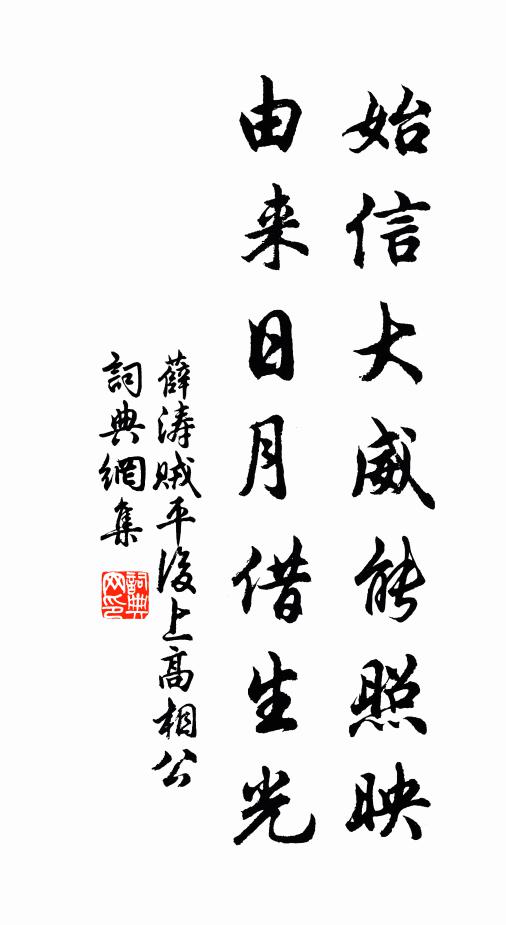 始信大威能照映
由来日月借生光
薛涛贼平後上高相公
詞典網集
詞典网印